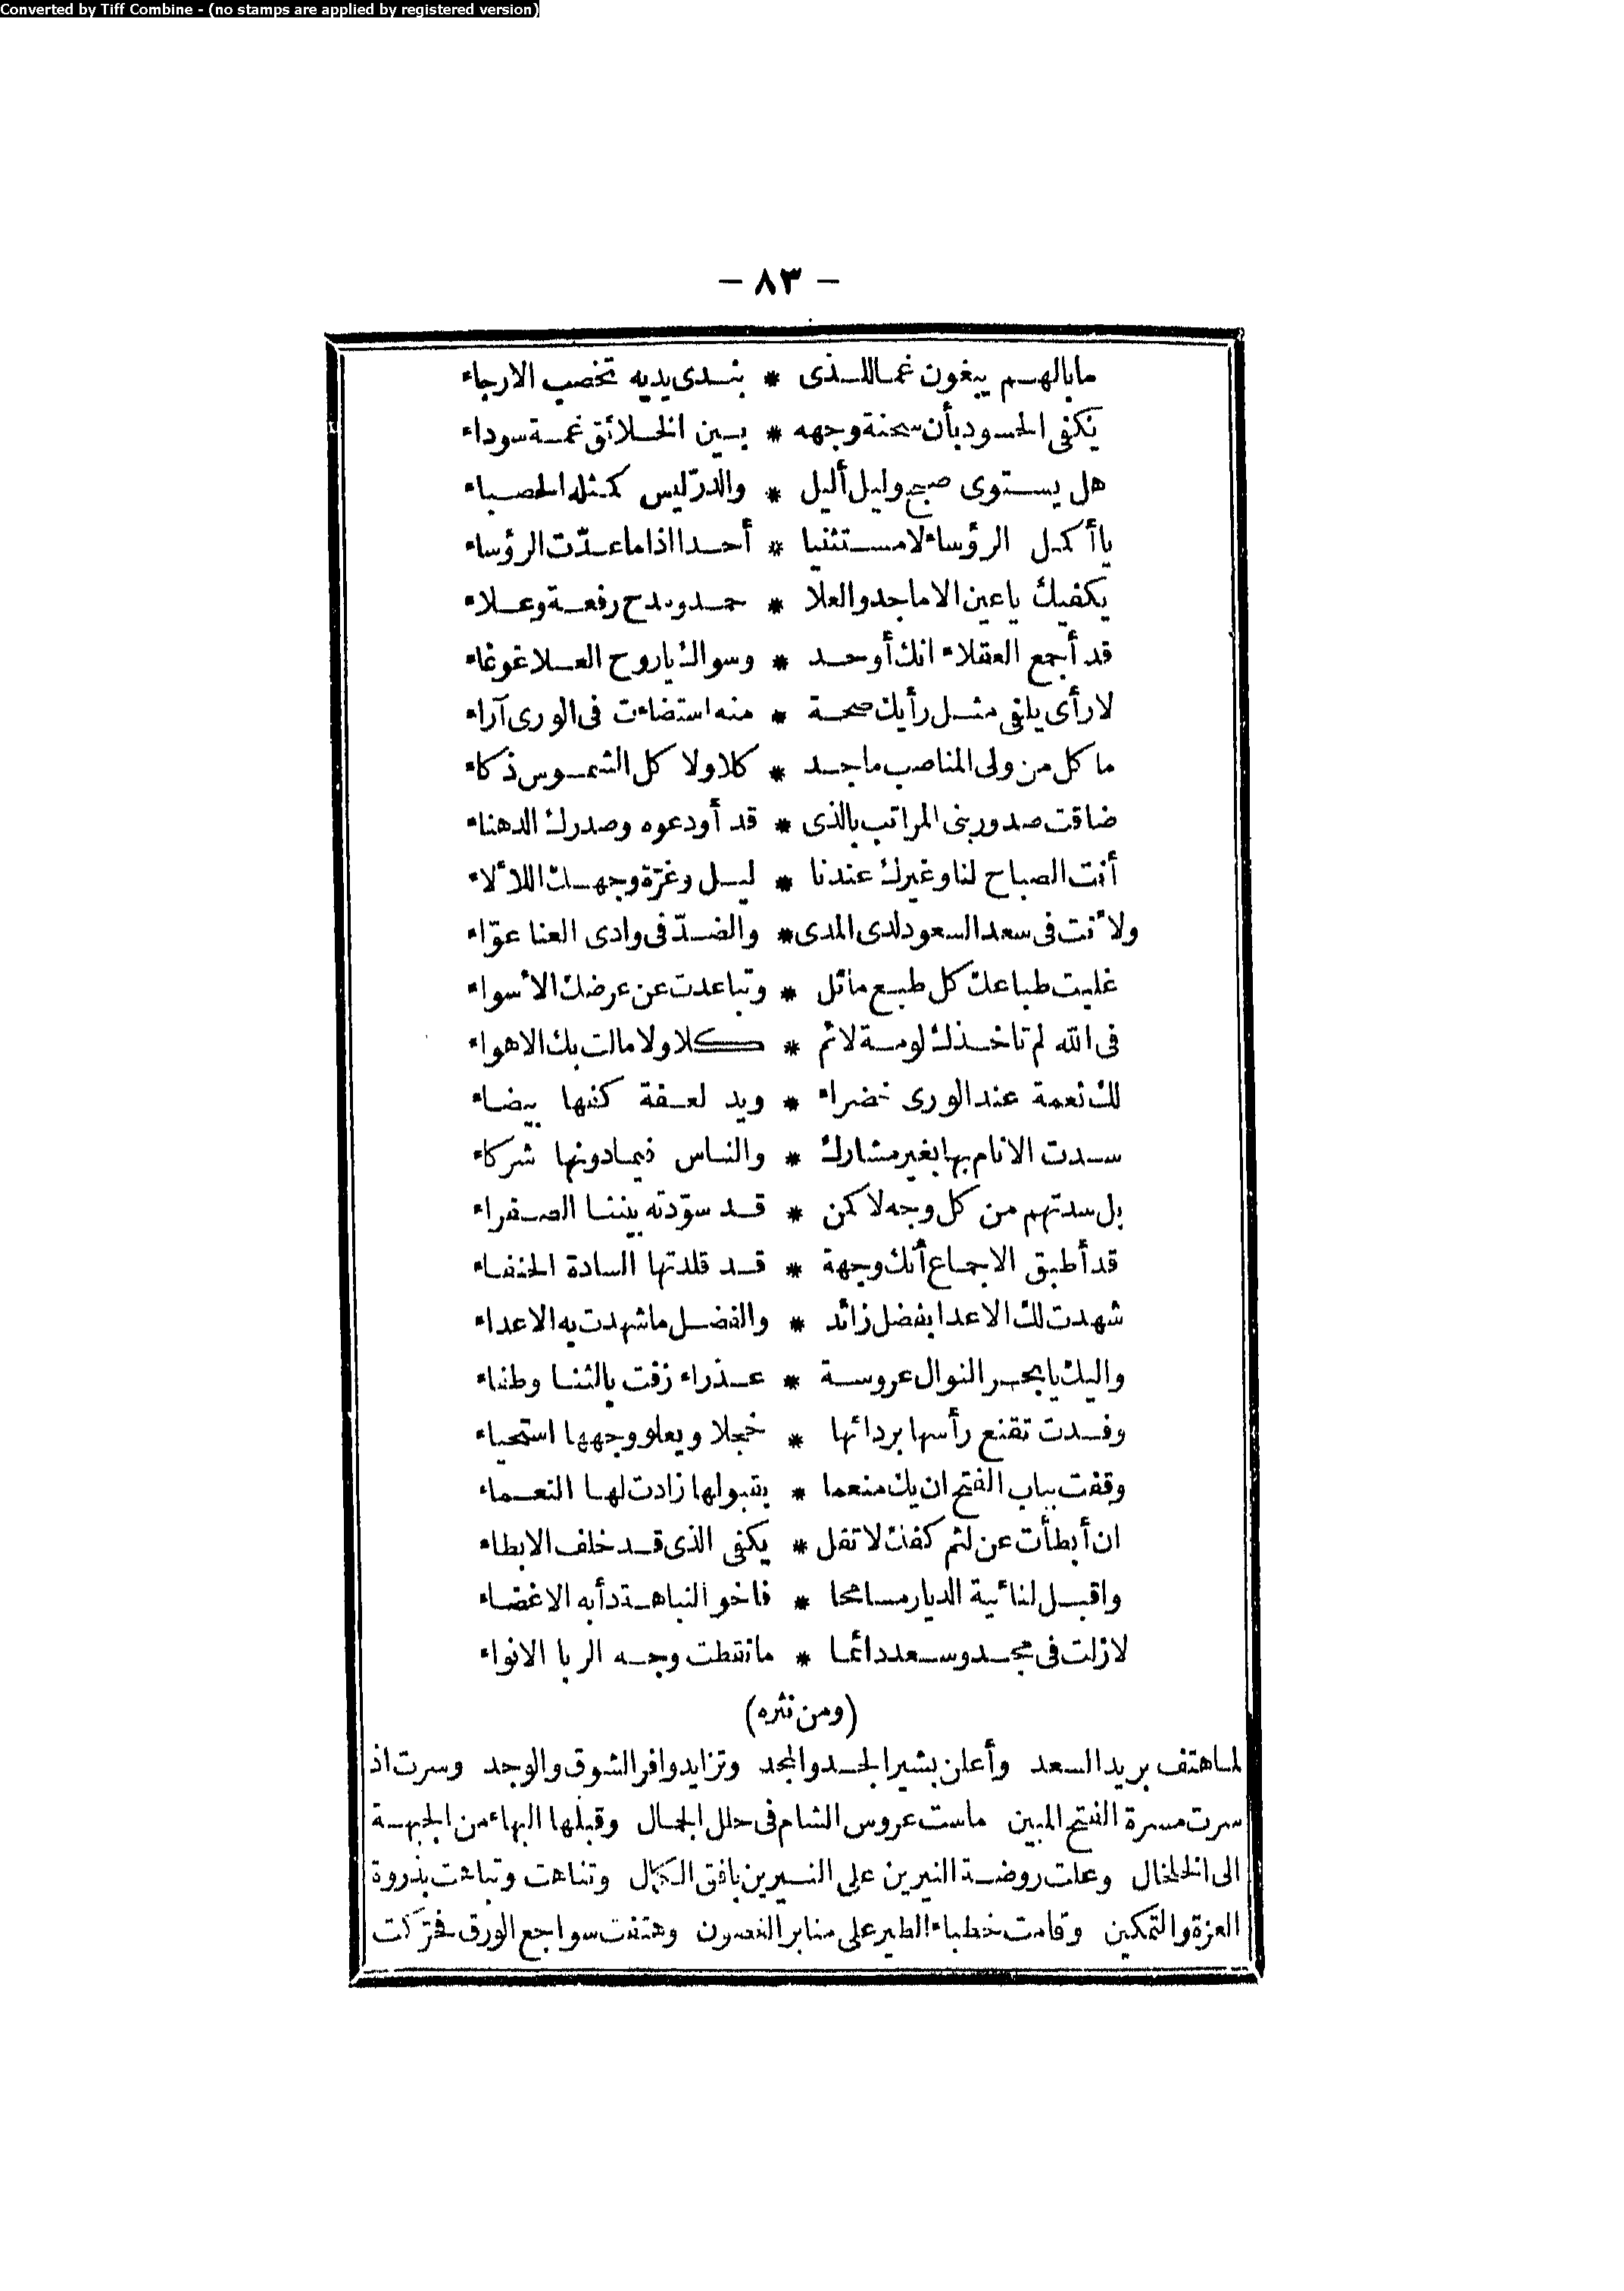 Converted by Tiff Combine - (no stamps are applied by registered version)
— ٨٣ —
مابالهم يبغون غما للذى * بندى يديه تخصب الارجاء
يكفى الحسود بأن سحنة وجهه * بين الخلائق غمة سوداء
هل يستوى صبح وليل أليل * والدرّ ليس كمثله الحصباء
ياأكمل الرؤساء لا مستثنيا * أحدا اذا ما عدّت الرؤساء
يكفيك ياعين الاماجد والعلا * حمد ومدح رفعة وعلاء
قد أجمع العقلاء انك أوحد * وسواك ياروح العلا غوغاء
لارأى يلفى مثل رأيك صحة * منه استضاءت فى الورى آراء
ما كل من ولى المناصب ماجد * كلا ولا كل الشموس ذكاء
ضاقت صدور بنى المراتب بالذى * قد أودعوه وصدرك الدهناء
أنت الصباح لنا وغيرك عندنا * ليل وغرّة وجهك اللألاء
ولأنت فى سعد السعود لدى المدى * والضدّ فى وادى العنا عوّاء
غلبت طباعك كل طبع مائل * وتباعدت عن عرضك الأسواء
فى الله لم تاخذك لومة لائم * كلا ولا مالت بك الاهواء
لك نعمة عند الورى خضراء * ويد لعفة كفها بيضاء
سدت الانام بها بغير مشارك * والناس فيمادونها شركاء
بل سدتهم من كل وجه لا كمن * قد سوّدته بيننا الصفراء
قد أطبق الاجماع أنك وجهة * قد قلدتها السادة الحنفاء
شهدت لك الاعدا بفضل زائد * والفضل ما شهدت به الاعداء
واليك يابحر النوال عروسة * عذراء زفت بالثنا وطفاء
وفدت تقنع رأسها بردائها * خجلا ويعلو وجهها استحياء
وقفت بباب الفتح ان يك منعما * بقبولها زادت لها النعماء
ان أبطأت عن لثم كفك لا تقل * يكفى الذى قد خلف الابطاء
واقبل لنائية الديار مسامحا * فاخو النباهة دأبه الاغضاء
لازلت فى مجد وسعد دائما * مانقطت وجه الربا الانواء
(ومن نثره)
لما هتف بريد السعد وأعلن بشير الحمد والمجد وتزايد وافر الشوق والوجد وسرت اذ
سرت مسرة الفتح المبين ماست عروس الشام فى حلل الجمال وقبلها البهاء من الجبهة
الى الخلخال وعلت روضة النيرين على النسيرين بافق الكمال وتناهت وتباهت بذروة
العزة والتمكين وقامت خطباء الطير على منابر الغصون وهتفت سواجع الورق فحرّكت